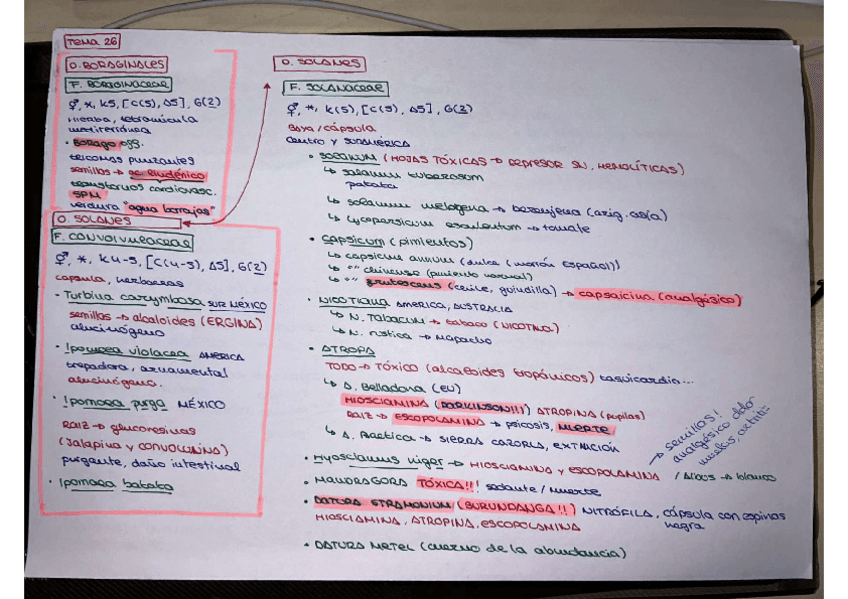 TEMA 26
O. BORAGINALES
F. BORAGINACEAE
⚥, *, K5, [C(5), A5], G(2)
Hierba, tetranúcula
mediterránea
• Borago off.
tricomas punzantes
semillas → ac. linolénico
transtornos cardiovasc.
SPM
verdura "agua borrajas"
O. SOLANES
F. CONVOLVULACEAE
⚥, *, K4-5, [C(4-5), A5], G(2)
capsula, herbaceas
• Turbina corymbosa SUR MÉXICO
semillas → alcaloides (ERGINA)
alucinógeno
• Ipomoea violacea AMERICA
trepadora, ornamental
alucinógeno.
• Ipomoea purga MÉXICO
RAIZ → gluconesinas
(Jalapina y CONVOLVULINA)
purgante, daño intestinal
• Ipomoea batata
O. SOLANES
F. SOLANACEAE
⚥, *, K(5), [C(5), A5], G(2)
Baya / cápsula
Centro y SUDAMÉRICA
• SOLANUM (HOJAS TÓXICAS → DEPRESOR SN, HEMOLÍTICAS)
↳ Solanum tuberosum
patata
↳ Solanum melogena → berenjena (orig. asia)
↳ Lycopersicum esculentum → tomate
• Capsicum (pimientos)
↳ capsicum annum (dulce (morrón español))
↳ "" chinense (pimiento normal)
↳ "" frutescens (chile, guindilla) → capsaicina (analgésico)
• NICOTIANA AMERICA, AUSTRALIA
↳ N. Tabacum → tabaco (NICOTINA.)
↳ N. rustica → Mapacho
• ATROPA
TODO → TÓXICO (alcaloides tropánicos) taquicardia...
↳ A. Belladona (EU)
HIOSCIAMINA (PARKINSON!!!) ATROPINA (pupilas)
RAIZ → ESCOPOLAMINA → psicosis, MUERTE
↳ A. Baetica → SIERRA CAZORLA, EXTINCIÓN
• Hyosciamus niger → HIOSCIAMINA y ESCOPOLAMINA / Albus → blanco
→ semillas!
analgésico dolor
muelas, artriti-
• MANDRAGORA TÓXICA!!! sedante / muerte
• DATURA STRAMONIUM (BURUNDANGA!!) NITRÓFILA, cápsula con espinas
negra
HIOSCIAMINA, ATROPINA, ESCOPOLAMINA
• DATURA METEL (cuerno de la abundancia)